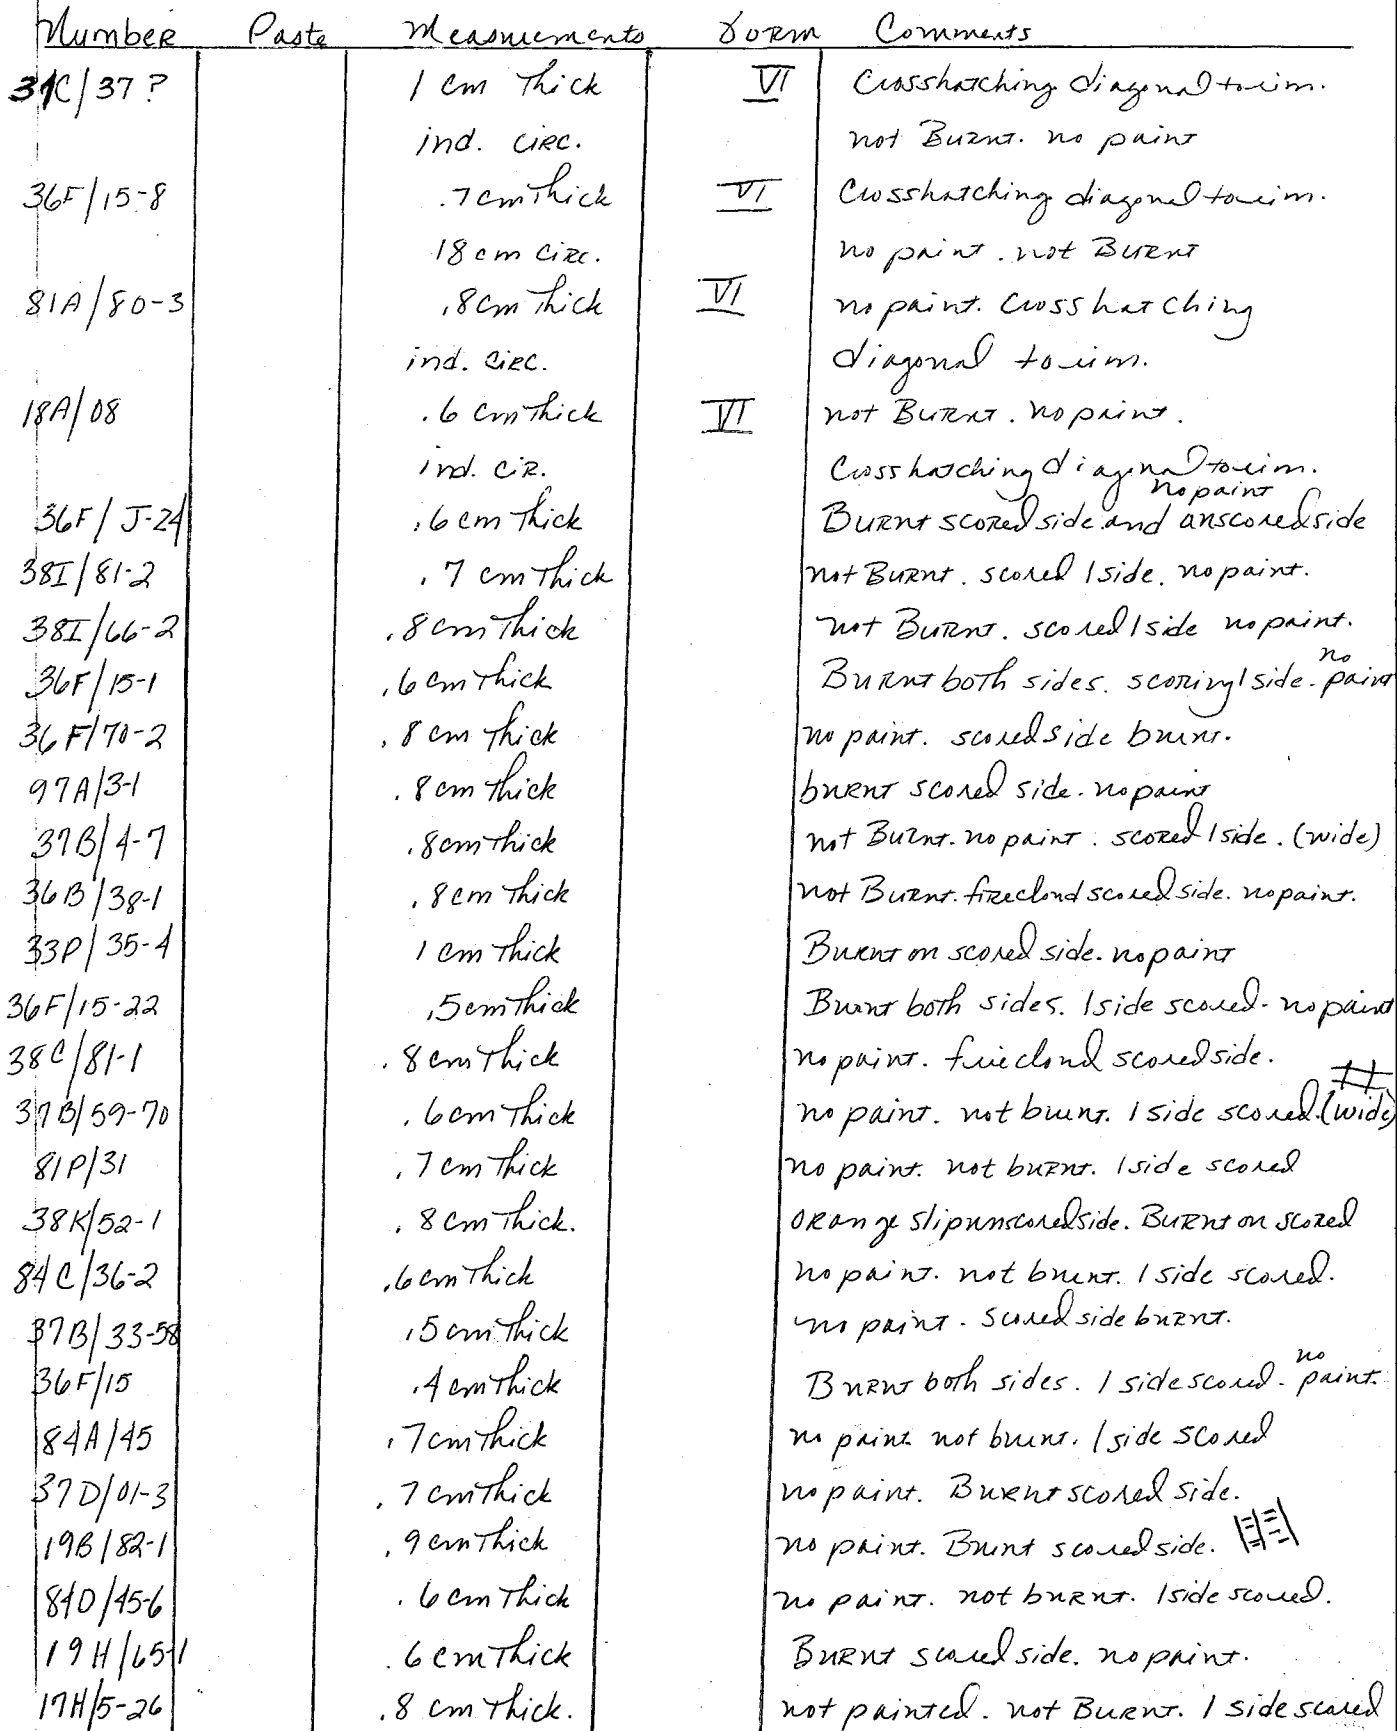 Number Paste Measurements Form Comments
31C/37 ? 1 cm Thick VI Crosshatching diagonal to rim.
ind. circ. not Burnt. no paint
36F/15-8 .7 cm Thick VI Crosshatching diagonal to rim.
18 cm circ. no paint. not Burnt
81A/80-3 .8 cm Thick VI no paint. Crosshatching
ind. circ. diagonal to rim.
18A/08 .6 cm Thick VI not Burnt. no paint.
ind. cir. Crosshatching diagonal to rim.
no paint
36F/J-24 .6 cm Thick Burnt scored side and unscored side
38I/81-2 .7 cm Thick not Burnt. scored 1 side. no paint.
38I/66-2 .8 cm Thick not Burnt. scored 1 side no paint.
no
36F/15-1 .6 cm Thick Burnt both sides. scoring 1 side. paint
36F/70-2 .8 cm Thick no paint. scored side burnt.
97A/3-1 .8 cm Thick burnt scored side. no paint
37B/4-7 .8 cm Thick not Burnt. no paint. scored 1 side. (wide)
36B/38-1 .8 cm Thick not Burnt. firecloud scored side. no paint.
33P/35-4 1 cm Thick Burnt on scored side. no paint
36F/15-22 .5 cm Thick Burnt both sides. 1 side scored. no paint
38C/81-1 .8 cm Thick no paint. firecloud scored side.
37B/59-70 .6 cm Thick no paint. not burnt. 1 side scored. (wide)
81P/31 .7 cm Thick no paint. not burnt. 1 side scored
38K/52-1 .8 cm Thick. orange slip unscored side. Burnt on scored
84C/36-2 .6 cm Thick no paint. not burnt. 1 side scored.
37B/33-58 .5 cm Thick no paint. scored side burnt.
no
36F/15 .4 cm Thick Burnt both sides. 1 side scored. paint.
84A/45 .7 cm Thick no paint not burnt. 1 side scored
37D/01-3 .7 cm Thick no paint. Burnt scored side.
19B/82-1 .9 cm Thick no paint. Burnt scored side.
84D/45-6 .6 cm Thick no paint. not burnt. 1 side scored.
19H/65-1 .6 cm Thick Burnt scored side. no paint.
17H/5-26 .8 cm Thick. not painted. not Burnt. 1 side scored